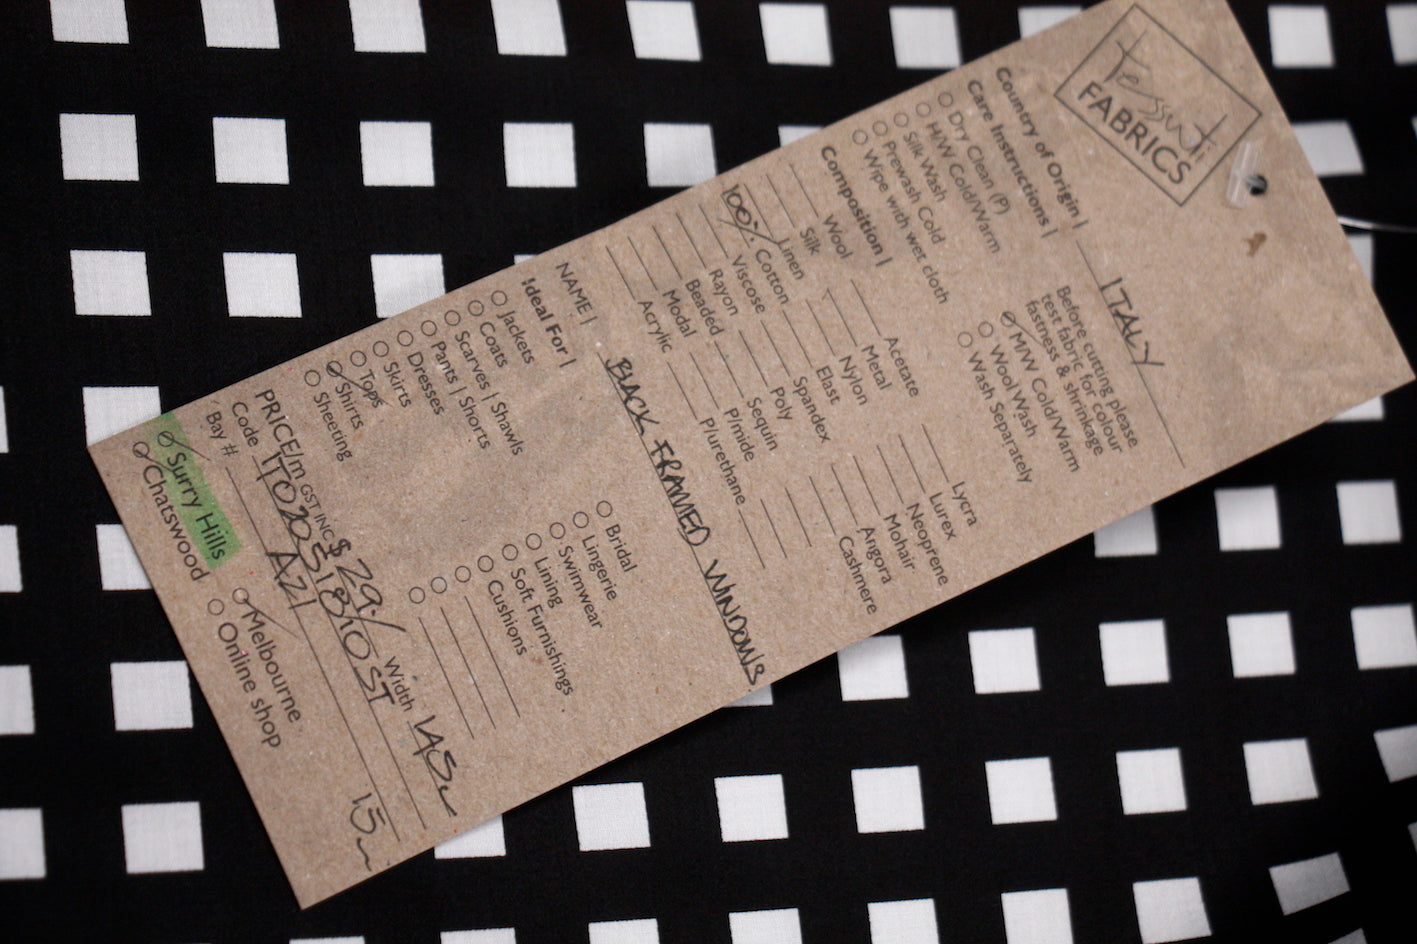 Tessuti
FABRICS
Country of Origin | ITALY
Care Instructions |
Before cutting please
test fabric for colour
fastness & shrinkage
Dry Clean (P)
H/W Cold/Warm
Silk Wash
Prewash Cold
Wipe with wet cloth
M/W Cold/Warm
Wool Wash
Wash Separately
Composition |
Wool Acetate Lycra
Silk Metal Lurex
Linen Nylon Neoprene
100% Cotton Elast Mohair
Viscose Spandex Angora
Rayon Poly Cashmere
Beaded Sequin
Modal P/mide
Acrylic P/urethane
NAME | BLACK FRAMED WINDOWS
Ideal For |
Jackets Bridal
Coats Lingerie
Scarves | Shawls Swimwear
Pants | Shorts Lining
Dresses Soft Furnishings
Skirts Cushions
Tops
Shirts
Sheeting
PRICE/m GST INC $ 29./ Width 145
Code
Bay # A21 15m
Surry Hills Melbourne
Chatswood Online shop